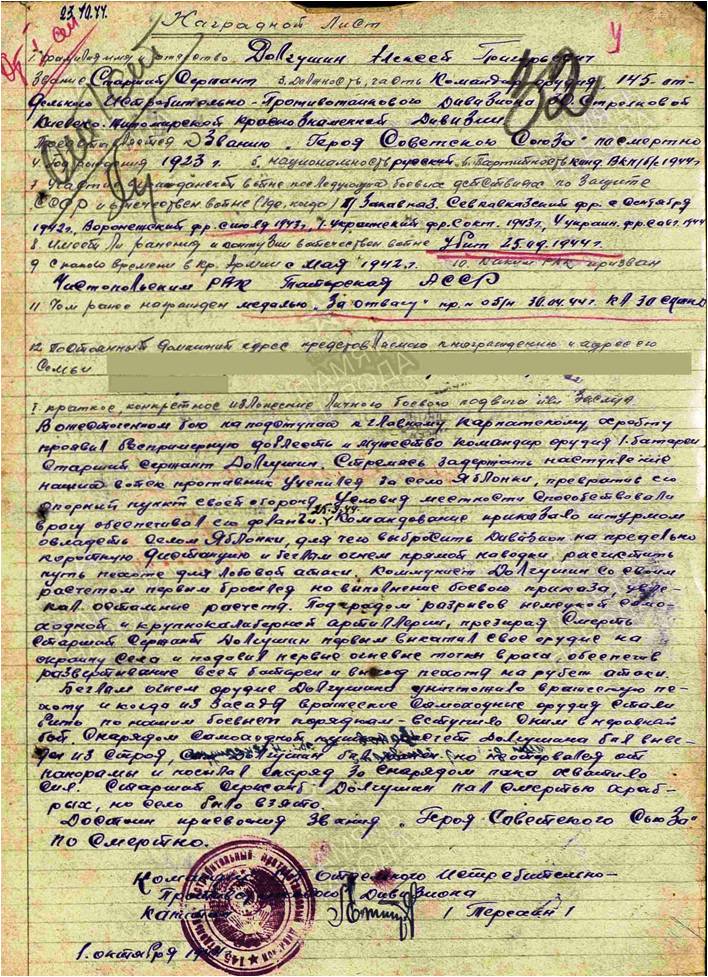 23.10.44.
Наградной Лист
1. Фамилия, имя, отчество Долгушин Алексей Григорьевич
Звание Старший Сержант 3. Должность, часть Командир орудия, 145- от-
дельного Истребительно-Противотанкового Дивизиона Стрелковой
Киевско-Житомирской Краснознаменной Дивизии
Представляется к Званию "Героя Советского Союза" посмертно
32
4. Год рождения 1923 г. 5. национальность русский 6. Партийность Канд. ВКП/б/ 1944г
7. Участие в гражданской войне, последующих боевых действиях по защите
СССР и отечествен. войне (где, когда) Закавказ. Севкавказский фр. с октября
1942г, Воронежский фр. с июля 1943г, 1. Украинский фр. с окт. 1943г, 4 украин. фр. с авг. 1944
8. Имеет ли ранения и контузии в отечествен. войне Убит 25.09.1944г.
9 С какого времени в Кр. Армии с Мая 1942г. 10. Каким РВК призван
Чистопольским РВК Татарская АССР
11. Чем ранее награжден медалью "За отвагу" пр. № 30.04.44г.
12. Постоянный домашний адрес представляемого к награждению и адрес его
семьи
1. Краткое, конкретное изложение личного боевого подвига или заслуг
В ожесточенном бою на подступах к главному Карпатскому хребту
проявил беспримерную доблесть и мужество командир орудия 1. батареи
Старший Сержант Долгушин. Стремясь задержать наступление
наших войск противник уцепился за село Яблонки, превратив его
опорный пункт своей обороны. Условия местности способствовали
врагу обеспечивая его фланги. 25.9.44. Командование приказало штурмом
овладеть Селом Яблонки, для чего выбросить Дивизион на предельно
короткую дистанцию и беглым огнем прямой наводки, расчистить
путь пехоте для лобовой атаки. Коммунист Долгушин со своим
расчетом первым бросился на выполнение боевого приказа, увле-
кая остальные расчеты. Под градом разрывов немецкой само-
ходной и крупнокалиберной артиллерии, презирая Смерть
Старший Сержант Долгушин первым выкатил свое орудие на
окраину Села и подавил первые огневые точки врага, обеспечив
развертывание всей батареи и выход пехоты на рубеж атаки.
Беглым огнем орудие Долгушина уничтожило вражескую пе-
хоту и когда из засады вражеские Самоходные орудия стали
бить по нашим боевым порядкам - вступило с ним в неравный
бой. Снарядом самоходной пушки расчет Долгушина был выве-
ден из строя, Долгушин был но не оторвался от
панорамы и посылал снаряд за снарядом пока хватило
сил. Старший Сержант Долгушин пал смертью храб-
рых, но село было взято.
Достоин присвоения звания "Героя Советского Союза"
по Смертно.
Командир 145 Отдельного Истребительно-
Противотанкового Дивизиона
Капитан / Персаин /
1. октября 19